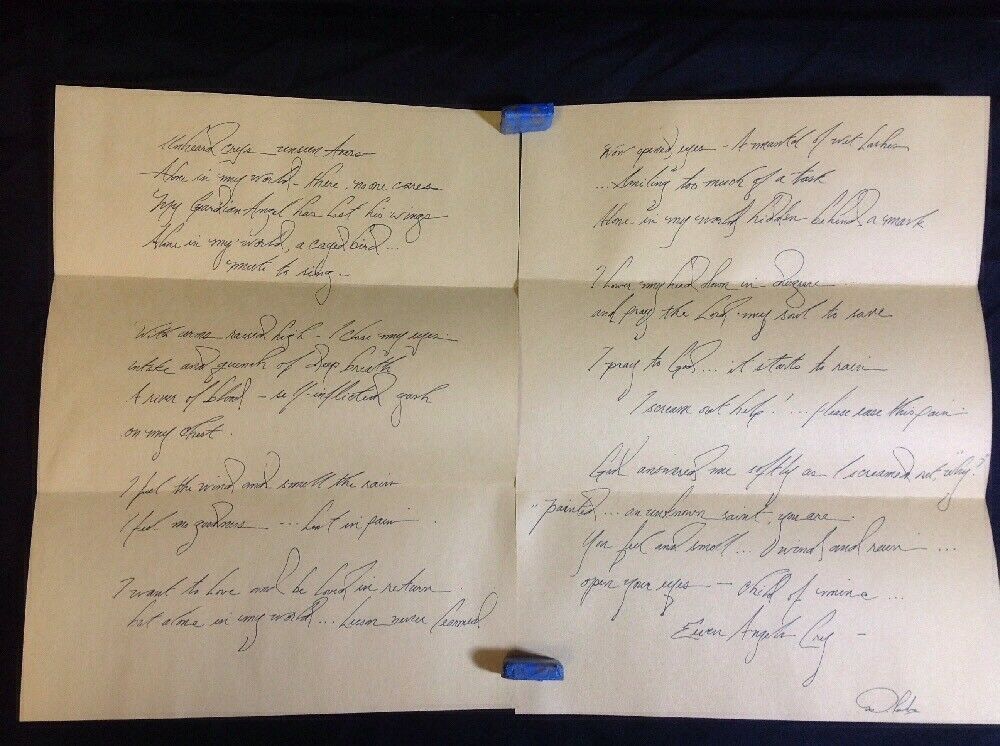 Unheard crys - unseen tears
Alone in my world - there, no one cares
My Gardian Angel has lost his wings
Alone in my world, a caged bird...
mute to sing -
With arms raised high - I close my eyes
intake and quench of deep breath
A river of blood - self-inflicted gash
on my chest.
I feel the wind and smell the rain
I feel no ... lost in pain
I want to love and be loved in return
but alone in my world... lesson never learned
Now opened, eyes - A mantel of wet lashes
...Smiling too much of a task
Alone in my world, hidden behind a mask
I lower my head down in
and pray the Lord, my soul to save
I pray to God,... it starts to rain
I scream out help! ... please ease this pain
God answared me softly as I screamed out, "why?"
"painted,... an unknown saint, you are
You feel and smell... wind, and rain ...
open your eyes - child of mine ...
Even Angels Cry -